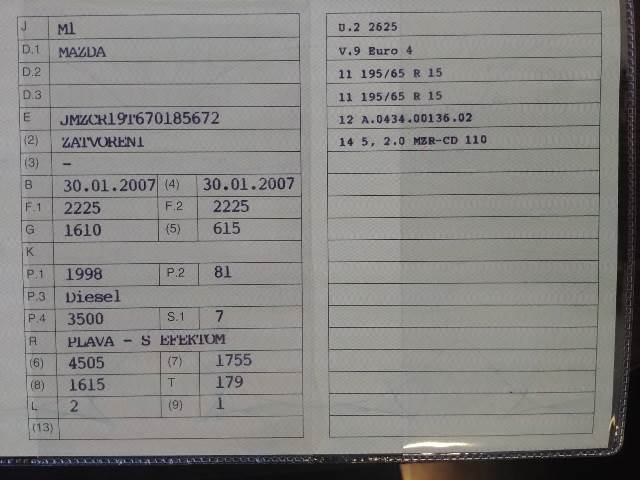 J M1
D.1 MAZDA
D.2
D.3
E JMZCR19T670185672
(2) ZATVORENI
(3) -
B 30.01.2007 (4) 30.01.2007
F.1 2225 F.2 2225
G 1610 (5) 615
K
P.1 1998 P.2 81
P.3 Diesel
P.4 3500 S.1 7
R PLAVA - S EFEKTOM
(6) 4505 (7) 1755
(8) 1615 T 179
L 2 (9) 1
(13)
U.2 2625
V.9 Euro 4
11 195/65 R 15
11 195/65 R 15
12 A.0434.00136.02
14 5, 2.0 MZR-CD 110